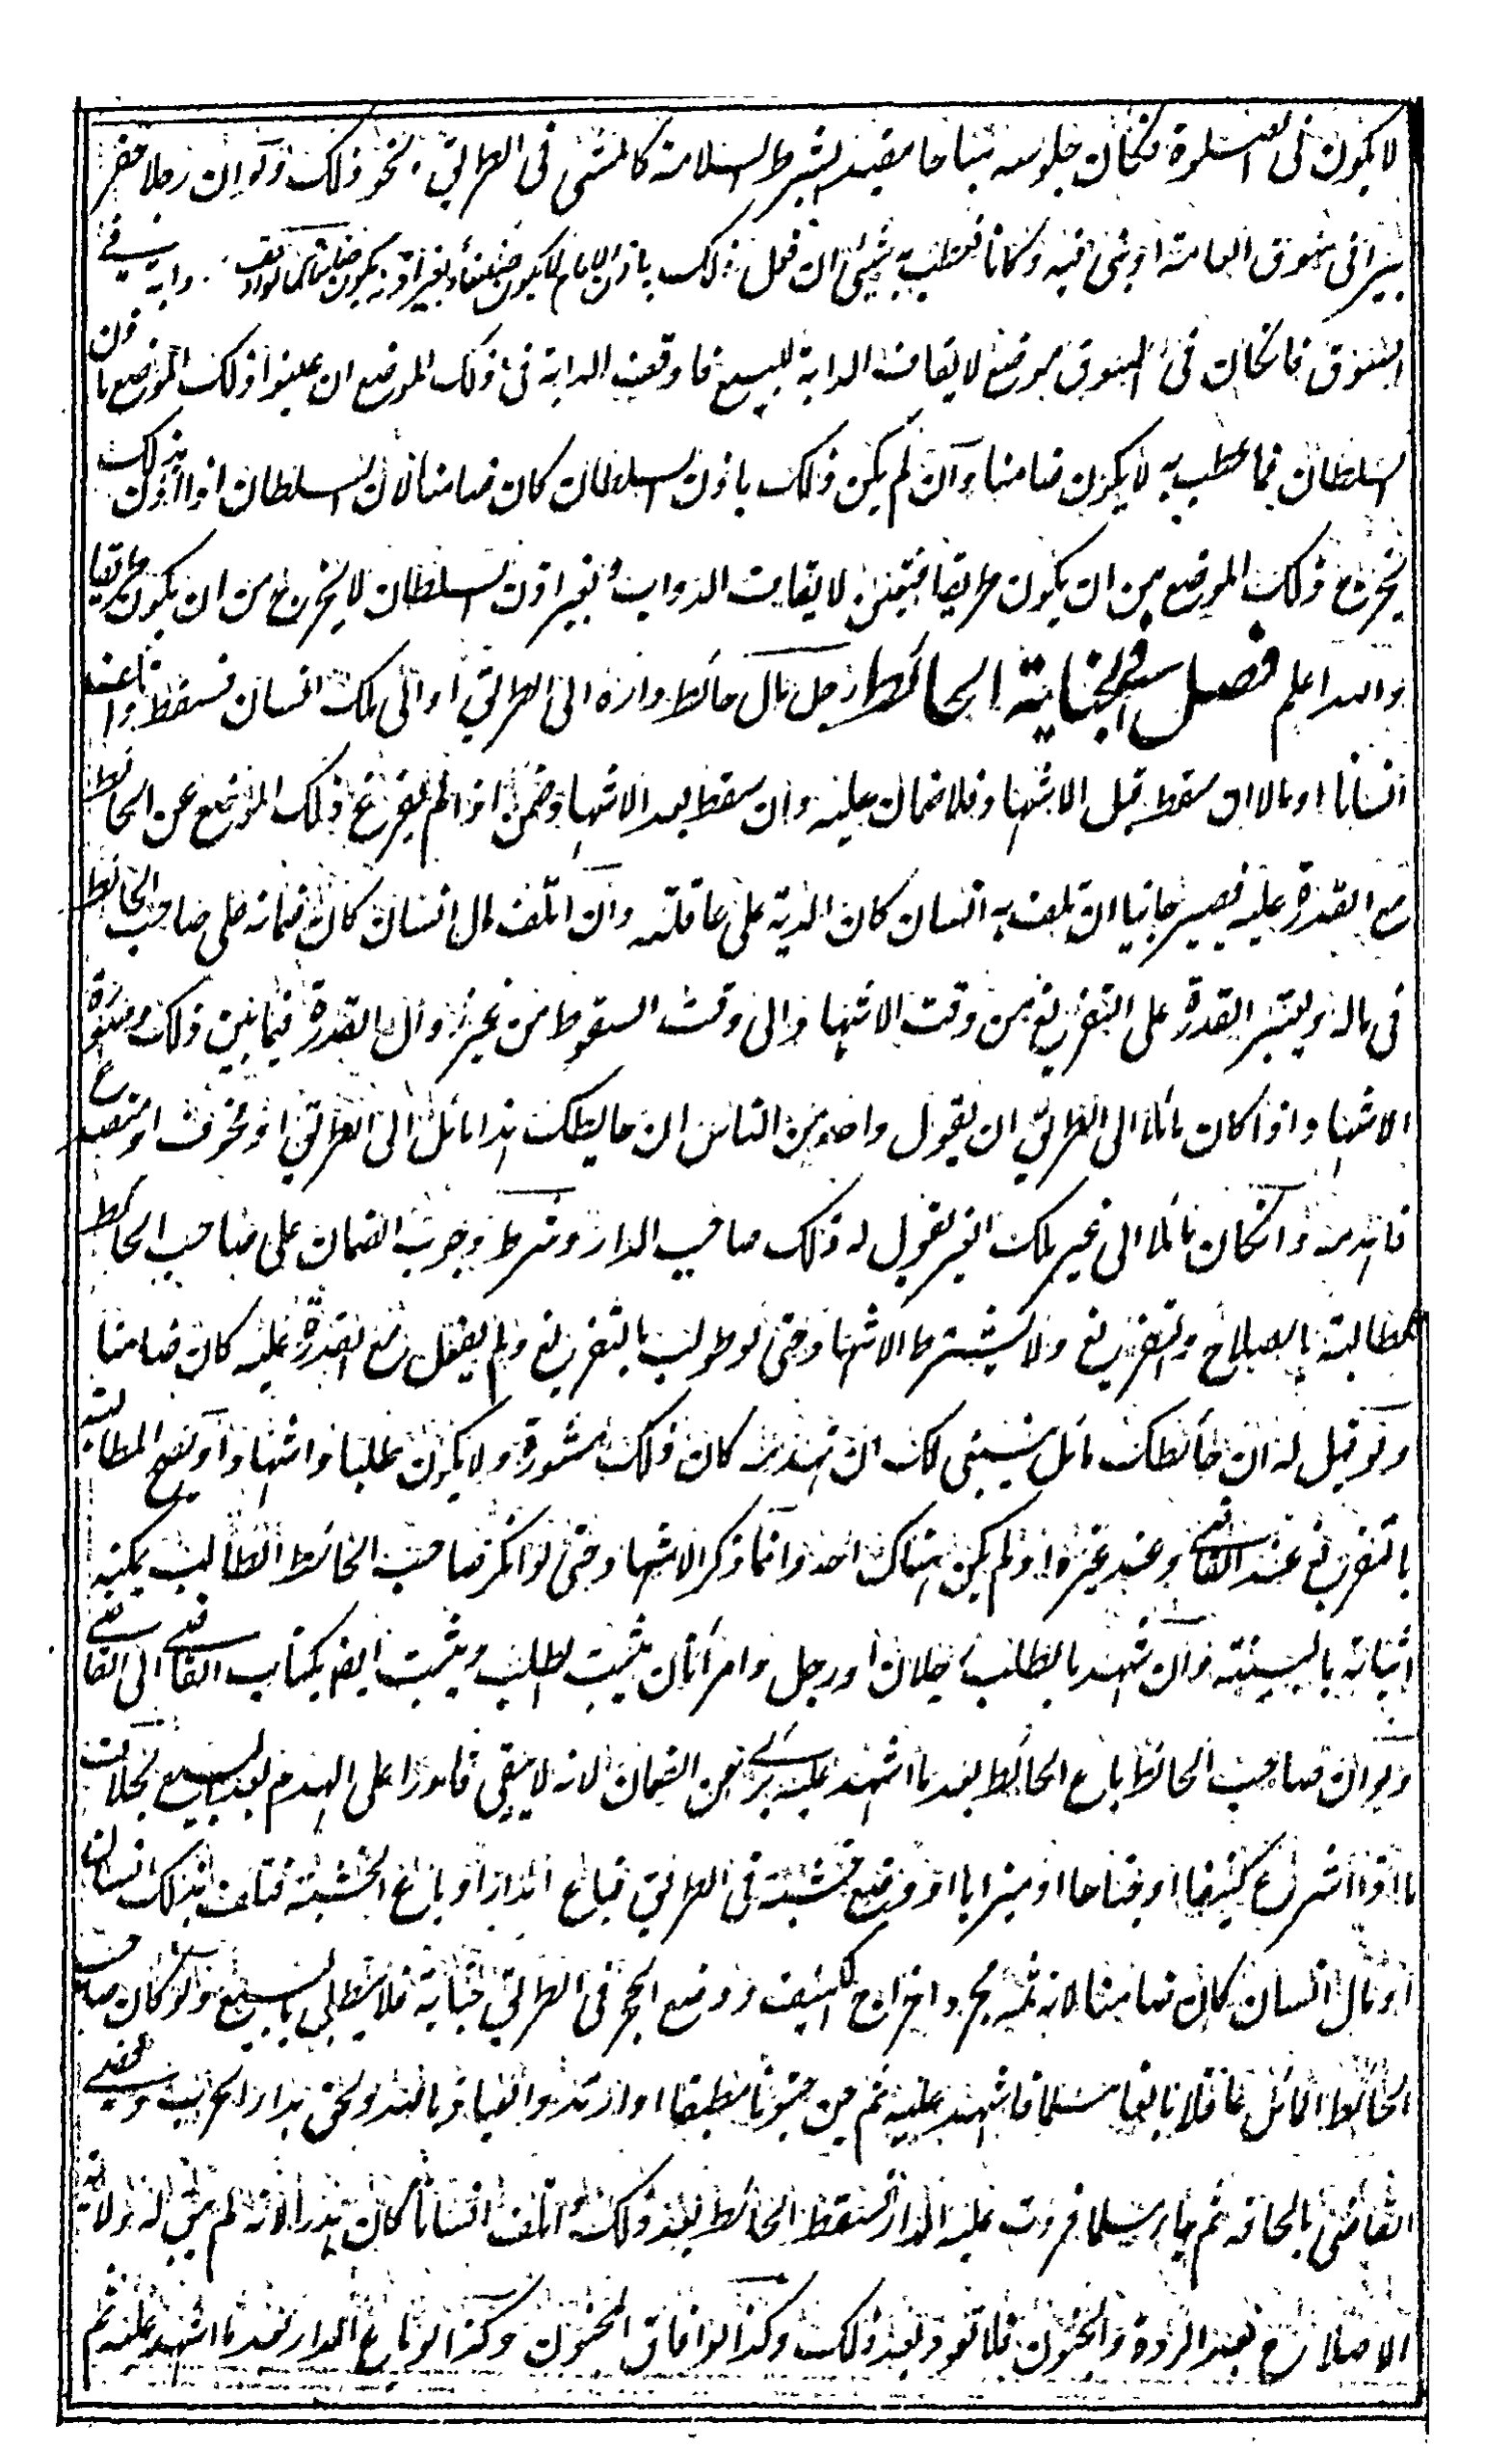 لا يكون فى الصلوة فكان جلوسه مباحا مقيدا بشرط السلامة كالمشى فى الطريق ونحو ذلك ولو ان رجلا حفر
بيرا فى سوق العامة او بنى فيه دكانا فعطب به شيئ ان فعل ذلك باذن الامام لا يكون ضامنا وبغير اذنه يكون ضامنا كما لو اوقف دابة فى
السوق فانكان فى السوق موضع لايقاف الدابة للبيع فاوقف الدابة فى ذلك الموضع ان عينوا ذلك الموضع باذن
السلطان فما عطب به لا يكون ضامنا وان لم يكن ذلك باذن السلطان كان ضامنا لان السلطان اذا اذن بذلك
يخرج ذلك الموضع من ان يكون طريقا فيتعين لايقاف الدواب وبغير اذن السلطان لا يخرج من ان يكون طريقا
والله اعلم فصل فى جناية الحائط رجل مال حائط داره الى الطريق او الى ملك انسان فسقط واتلف
انسانا او مالا ان سقط قبل الاشهاد فلا ضمان عليه وان سقط بعد الاشهاد ضمن اذا لم يفرغ ذلك الموضع عن الحائط
مع القدرة عليه فيصير جانيا ان تلف به انسان كان الدية على عاقلته وان اتلف مال انسان كان ضمانه على صاحب الحائط
فى ماله ويعتبر القدرة على التفريغ من وقت الاشهاد الى وقت السقوط من غير زوال القدرة فيما بين ذلك وصورة
الاشهاد اذا كان مائلا الى الطريق ان يقول واحد من الناس ان حائطك هذا مائل الى الطريق او مخوف او متصدع
فاهدمه وانكان مائلا الى غير ملك الغير يقول له ذلك صاحب الدار وشرط وجوب الضمان على صاحب الحائط
المطالبة بالاصلاح والتفريغ ولا يشترط الاشهاد حتى لو طولب بالتفريغ ولم يفعل مع القدرة عليه كان ضامنا
ولو قيل له ان حائطك مائل ينبغى لك ان تهدمه كان ذلك مشورة ولا يكون طلبا واشهادا ويصح المطالبة
بالتفريغ عند القاضى وعند غيره اذ لم يكن هناك احد وانما ذكر الاشهاد حتى لو انكر صاحب الحائط الطلب يمكنه
اثباته بالبينة وان شهد بالطلب رجلان او رجل وامرأتان يثبت الطلب ويثبت ايضا بكتاب القاضى الى القاضى
ولو ان صاحب الحائط باع الحائط بعد ما اشهد عليه برئ عن الضمان لانه لا يبقى قادرا على الهدم بعد البيع بخلاف
ما اذا اشرع كنيفا او جناحا او ميزابا او وضع خشبة فى الطريق فباع الدار او باع الخشبة فتلف بذلك انسان
او مال انسان كان ضامنا لان ثمه مجرد اخراج الكنيف ووضع الحجر فى الطريق جناية فلا يبطل بالبيع ولو كان صاحب
الحائط المائل عاقلا بالغا مسلما فاشهد عليه ثم جن جنونا مطبقا او ارتد والعياذ بالله ولحق بدار الحرب وقضى
القاضى بالحاقه ثم جاء مسلما فردت عليه الدار فسقط الحائط بعد ذلك واتلف انسانا كان هدرا لانه لم يبق له ولاية
الاصلاح بعد الردة والجنون فلا تعود بعد ذلك وكذا لو افاق المجنون وكذا لو باع الدار بعد ما اشهد عليه ثم